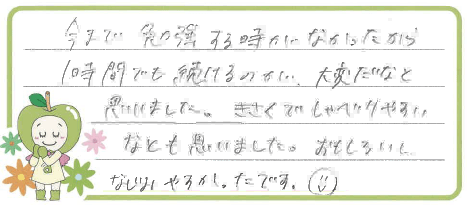 今まで勉強する時がなかったから
1時間でも続けるのが、大変だなと
思いました。きさくでしゃべりやすい
なとも思いました。おもしろいし、
なじみやすかったです。